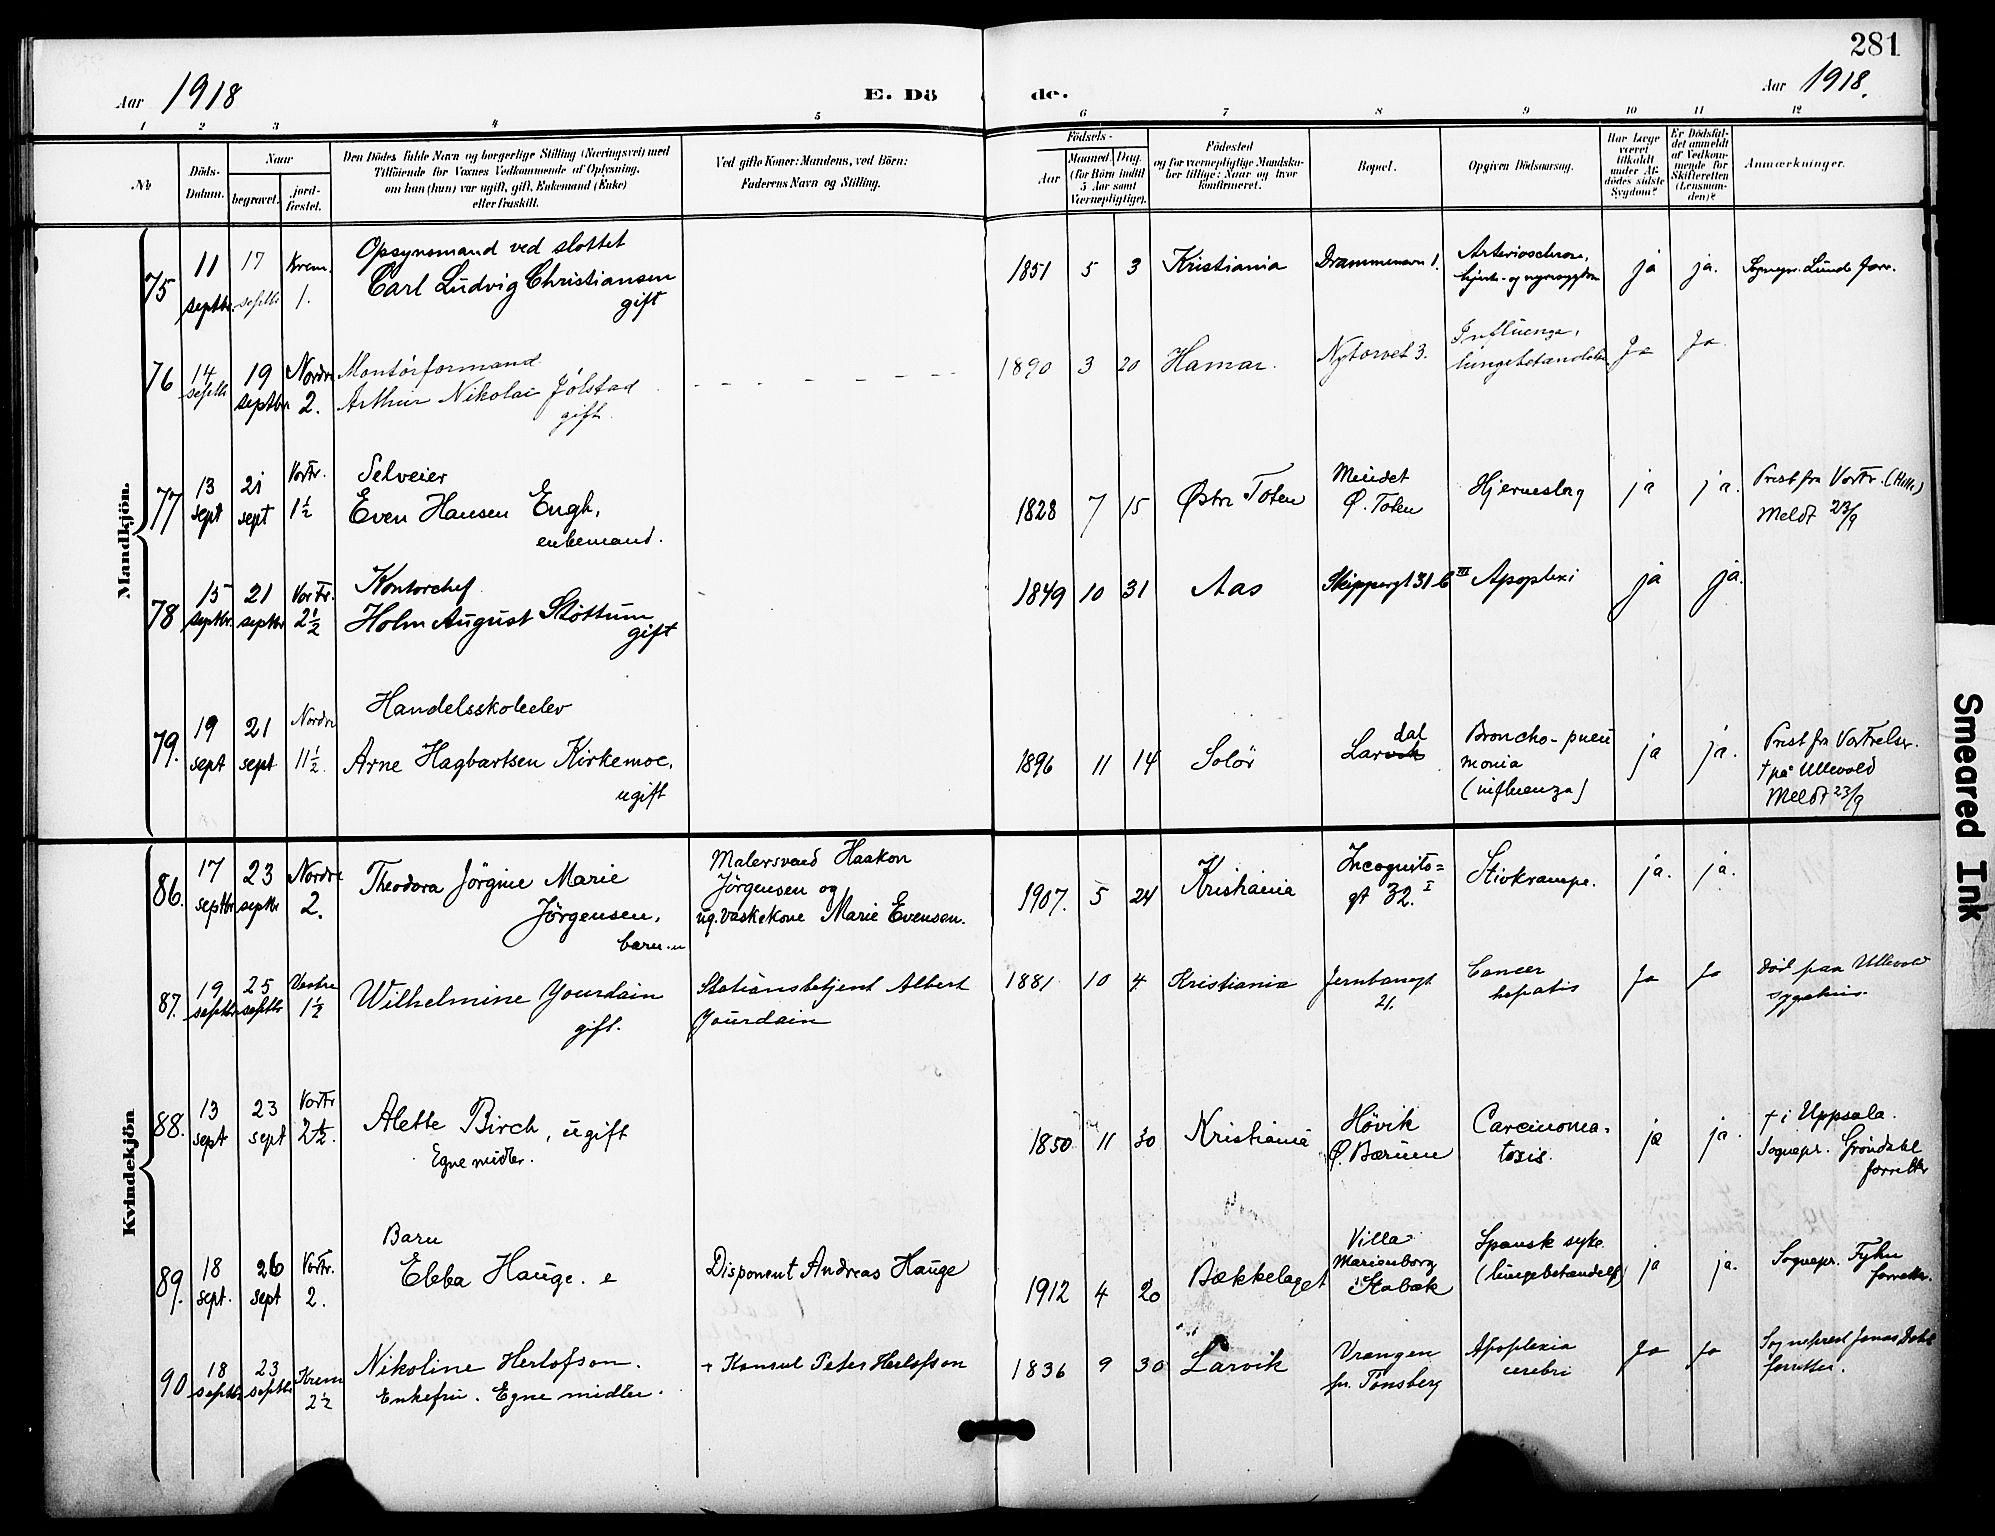 281
Aar 1918
E. Dö de.
Aar 1918.
1 2 3 4 5 6 7 8 9 10 11 12
No
Döds-
Datum.
Naar
begravet.
jord-
fæstet.
Den Dödes fulde Navn og borgerlige Stilling (Næringsvei) med
Tilföiende for Voxnes Vedkommende af Oplysning,
om han (hun) var ugift, gift, Enkemand (Enke)
eller fraskilt.
Ved gifte Koner: Mandens, ved Börn:
Faderens Navn og Stilling.
Födsels-
Aar
Maaned. Dag.
(for Börn indtil
5 Aar samt
Værnepligtige).
Födested
og for værnepligtige Mandsku-
ber tillige: Naar og hvor
konfirmeret.
Bopæl.
Opgiven Dödsaarsag.
Har Læge
været
tilkaldt
under Af-
dödes sidste
Sygdom?
Er Dödsfal-
det anmeldt
af Vedkom-
mende for
Skifteretten
(Lensman-
den)?
Anmærkninger.
Mandkjön.
75
11
septbr.
17
septbr
Krem.
1.
Opsynsmand ved slottet
Carl Ludvig Christiansen
gift
1851 5 3
Kristiania
Drammensvn 1.
hjerte- og nyresygdom
ja ja.
Sognepr. Lunde forr.
76
14
septbr
19
septbr
Nordre
2.
Montörformand
Arthur Nikolai Jølstad
gift.
1890 3 20
Hamar.
Nytorvet 3.
Influenza,
lungebetændelse
Ja Ja
77
13
sept
21
sept
Vor Fr.
1½
Selveier
Even Hansen Engh,
enkemand.
1828 7 15
Østre Toten
Ø. Toten
Hjerneslag
ja ja.
Prest fra Vor Fr.
Meldt 23/9
78
15
septbr.
21
septbr
Vor Fr.
2½
Kontorchef
Holm August Støttum
gift
1849 10 31
Aas
Skippergt 31 b III
Apoplexi
ja ja.
79.
19
sept
21
sept
Nordre
11½
Handelsskoleelev
Arne Hagbartsen Kirkemoe,
ugift
1896 11 14
Solör
dal
Larvik
Broncho-pneu
monia
(influenza)
ja ja.
Prest fra Vor Frelser.
† på Ullevold
Meldt 23/9
Kvindekjön
86.
17
septbr
23
septbr
Nordre
2.
Theodora Jörgine Marie
Jörgensen,
barn. u
Malersvend Haakon
Jörgensen og
ug. vaskekone Marie Evensen.
1907. 5 24
Kristiania
Incognito=
gt 32. I
Stivkrampe.
ja. ja.
87.
19
septbr
25
septbr
Vestre
1½
Wilhelmine Yourdain
gift.
Stationsbetjent Albert
Yourdain
1881 10 4
Kristiania
Jernbanegt
21.
Cancer
hepatis
Ja Ja
Död paa Ullevold
sygehus.
88.
13
sept
23
sept
Vor Fr
2½.
Alette Birch, ugift
Egne midler.
1850 11 30
Kristiania
Hövik
Ø. Bærum
Carcinoma-
tosis.
ja ja.
† i Uppsala.
Sognepr. Gröndahl
forretter
89.
18
sept.
26
sept
Vor Fr.
2.
Barn
Ebba Hauge. e
Disponent Andreas Hauge
1912 4 20
Bækkelaget
Villa
Marienborg
Stabæk
Spansk syke
(lungebetændelse)
ja ja.
Sognepr. Fyhn
forretter.
90
18
septbr
23
septbr
Krem
2½
Nikoline Herlofson.
Enkefru. Egne midler.
+ Konsul Peter Herlofson
1836 9 30
Larvik
Vrangen
pr. Tönsberg
Apoplexia
cerebri
Ja Ja
Sogneprest Jonas Dahl
forretter.
Smeared Ink